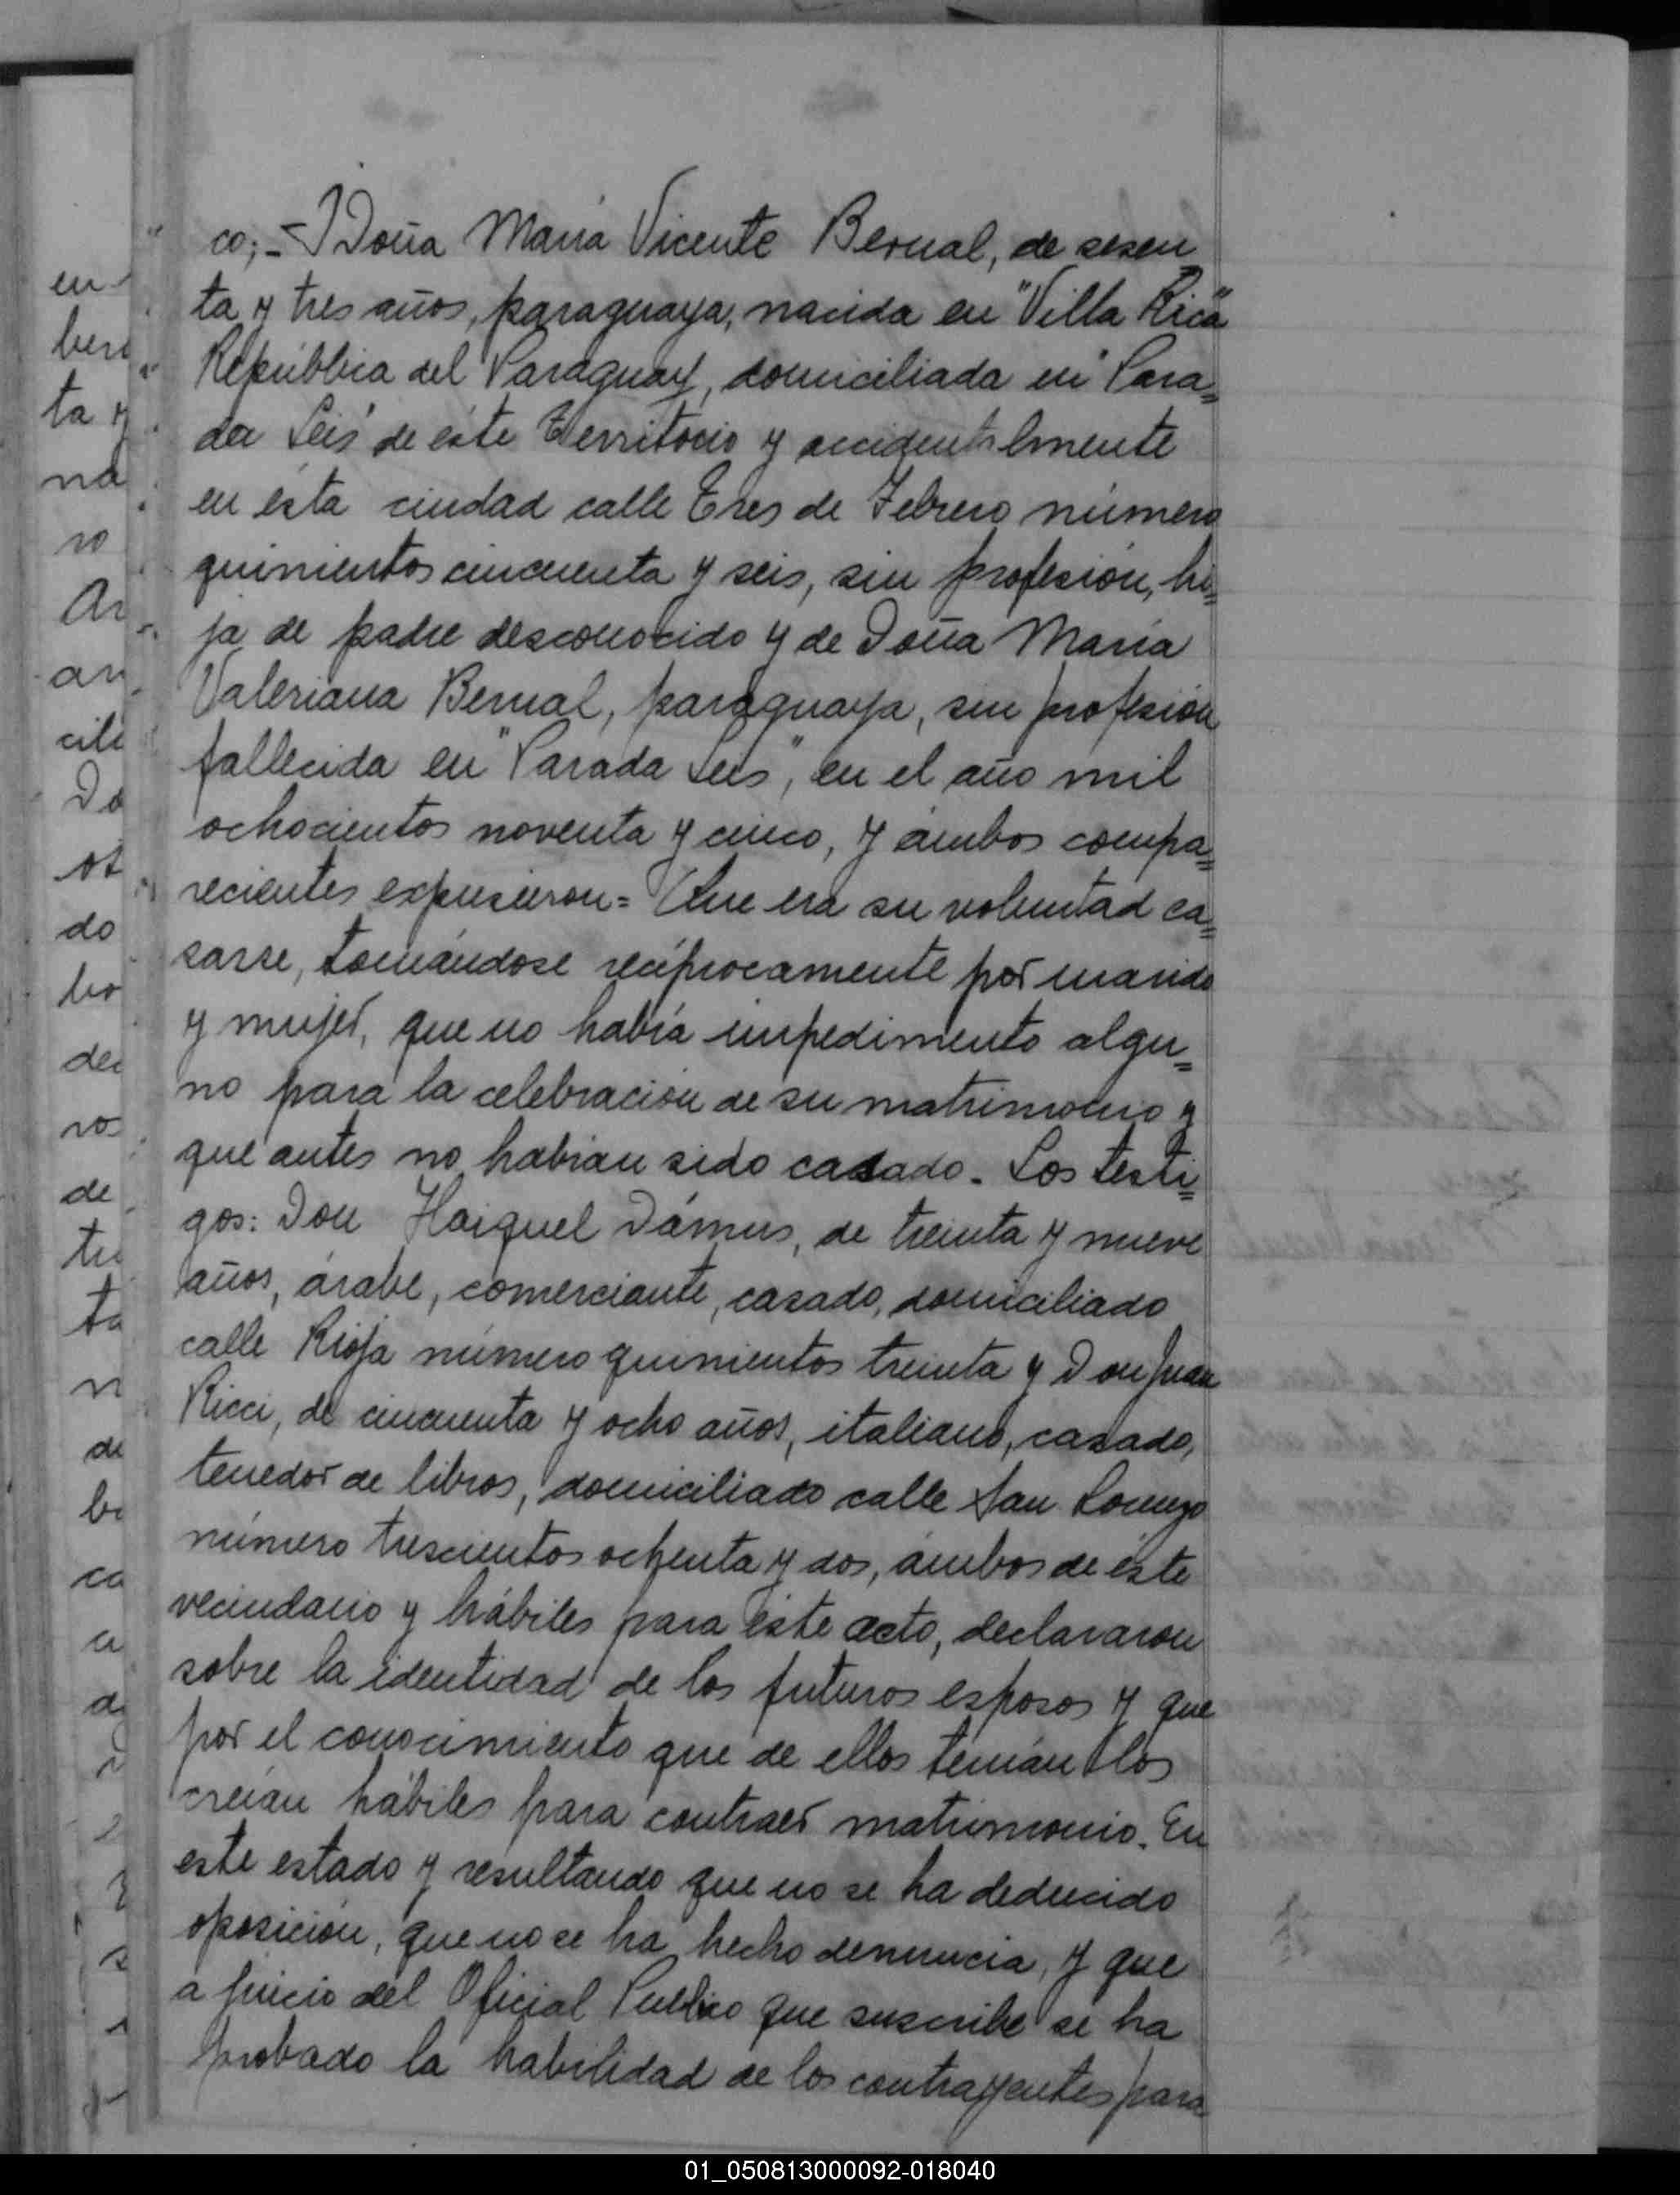 co; = Doña María Vicente Bernal, de sesen
ta y tres años, paraguaya, nacida en "Villa Rica"
República del Paraguay, domiciliada en "Para=
da Seis" de éste Territorio y accidentalmente
en ésta ciudad calle Tres de Febrero número
quinientos cincuenta y seis, sin profesión, hi=
ja de padre desconocido y de Doña María
Valeriana Bernal, paraguaya, sin profesión
fallecida en "Parada Seis", en el año mil
ochocientos noventa y cinco, y ámbos compa=
recientes expusieron= Que era su voluntad ca=
sarse, tomándose recíprocamente por marido
y mujer, que no había impedimento algu=
no para la celebración de su matrimonio y
que antes no habían sido casado. Los testi=
gos: Don Haiquel Dámus, de treinta y nueve
años, árabe, comerciante, casado, domiciliado
calle Rioja número quinientos treinta y Don Juan
Ricci, de cincuenta y ocho años, italiano, casado,
tenedor de libros, domiciliado calle San Lorenzo
número trescientos ochenta y dos, ámbos de éste
vecindario y hábiles para éste acto, declararon
sobre la identidad de los futuros esposos y que
por el conocimiento que de ellos tenían los
creían hábiles para contraer matrimonio. En
este estado y resultando que no se ha deducido
oposición, que no se ha hecho denuncia, y que
a juicio del Oficial Publico que suscribe se ha
probado la habilidad de los contrayentes para
01_050813000092-018040